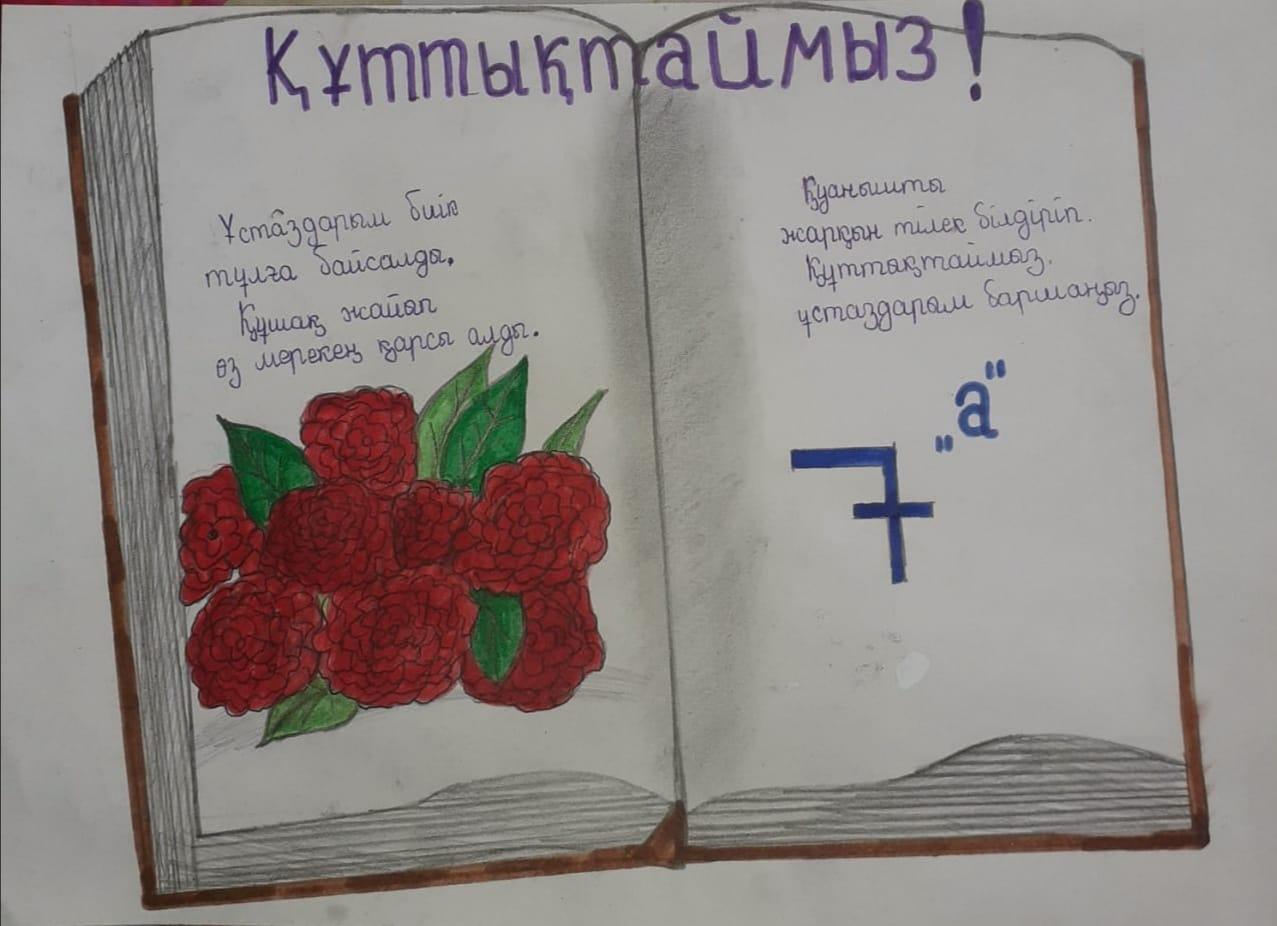 Құттықтаймыз!
Ұстаздарым биік
тұлға байсалды,
Құшақ жайып
өз мерекең қарсы алды.
Қуанышты
жарқын тілек білдіріп.
Құттықтаймыз.
ұстаздарым бармаңыз.
7 „а"